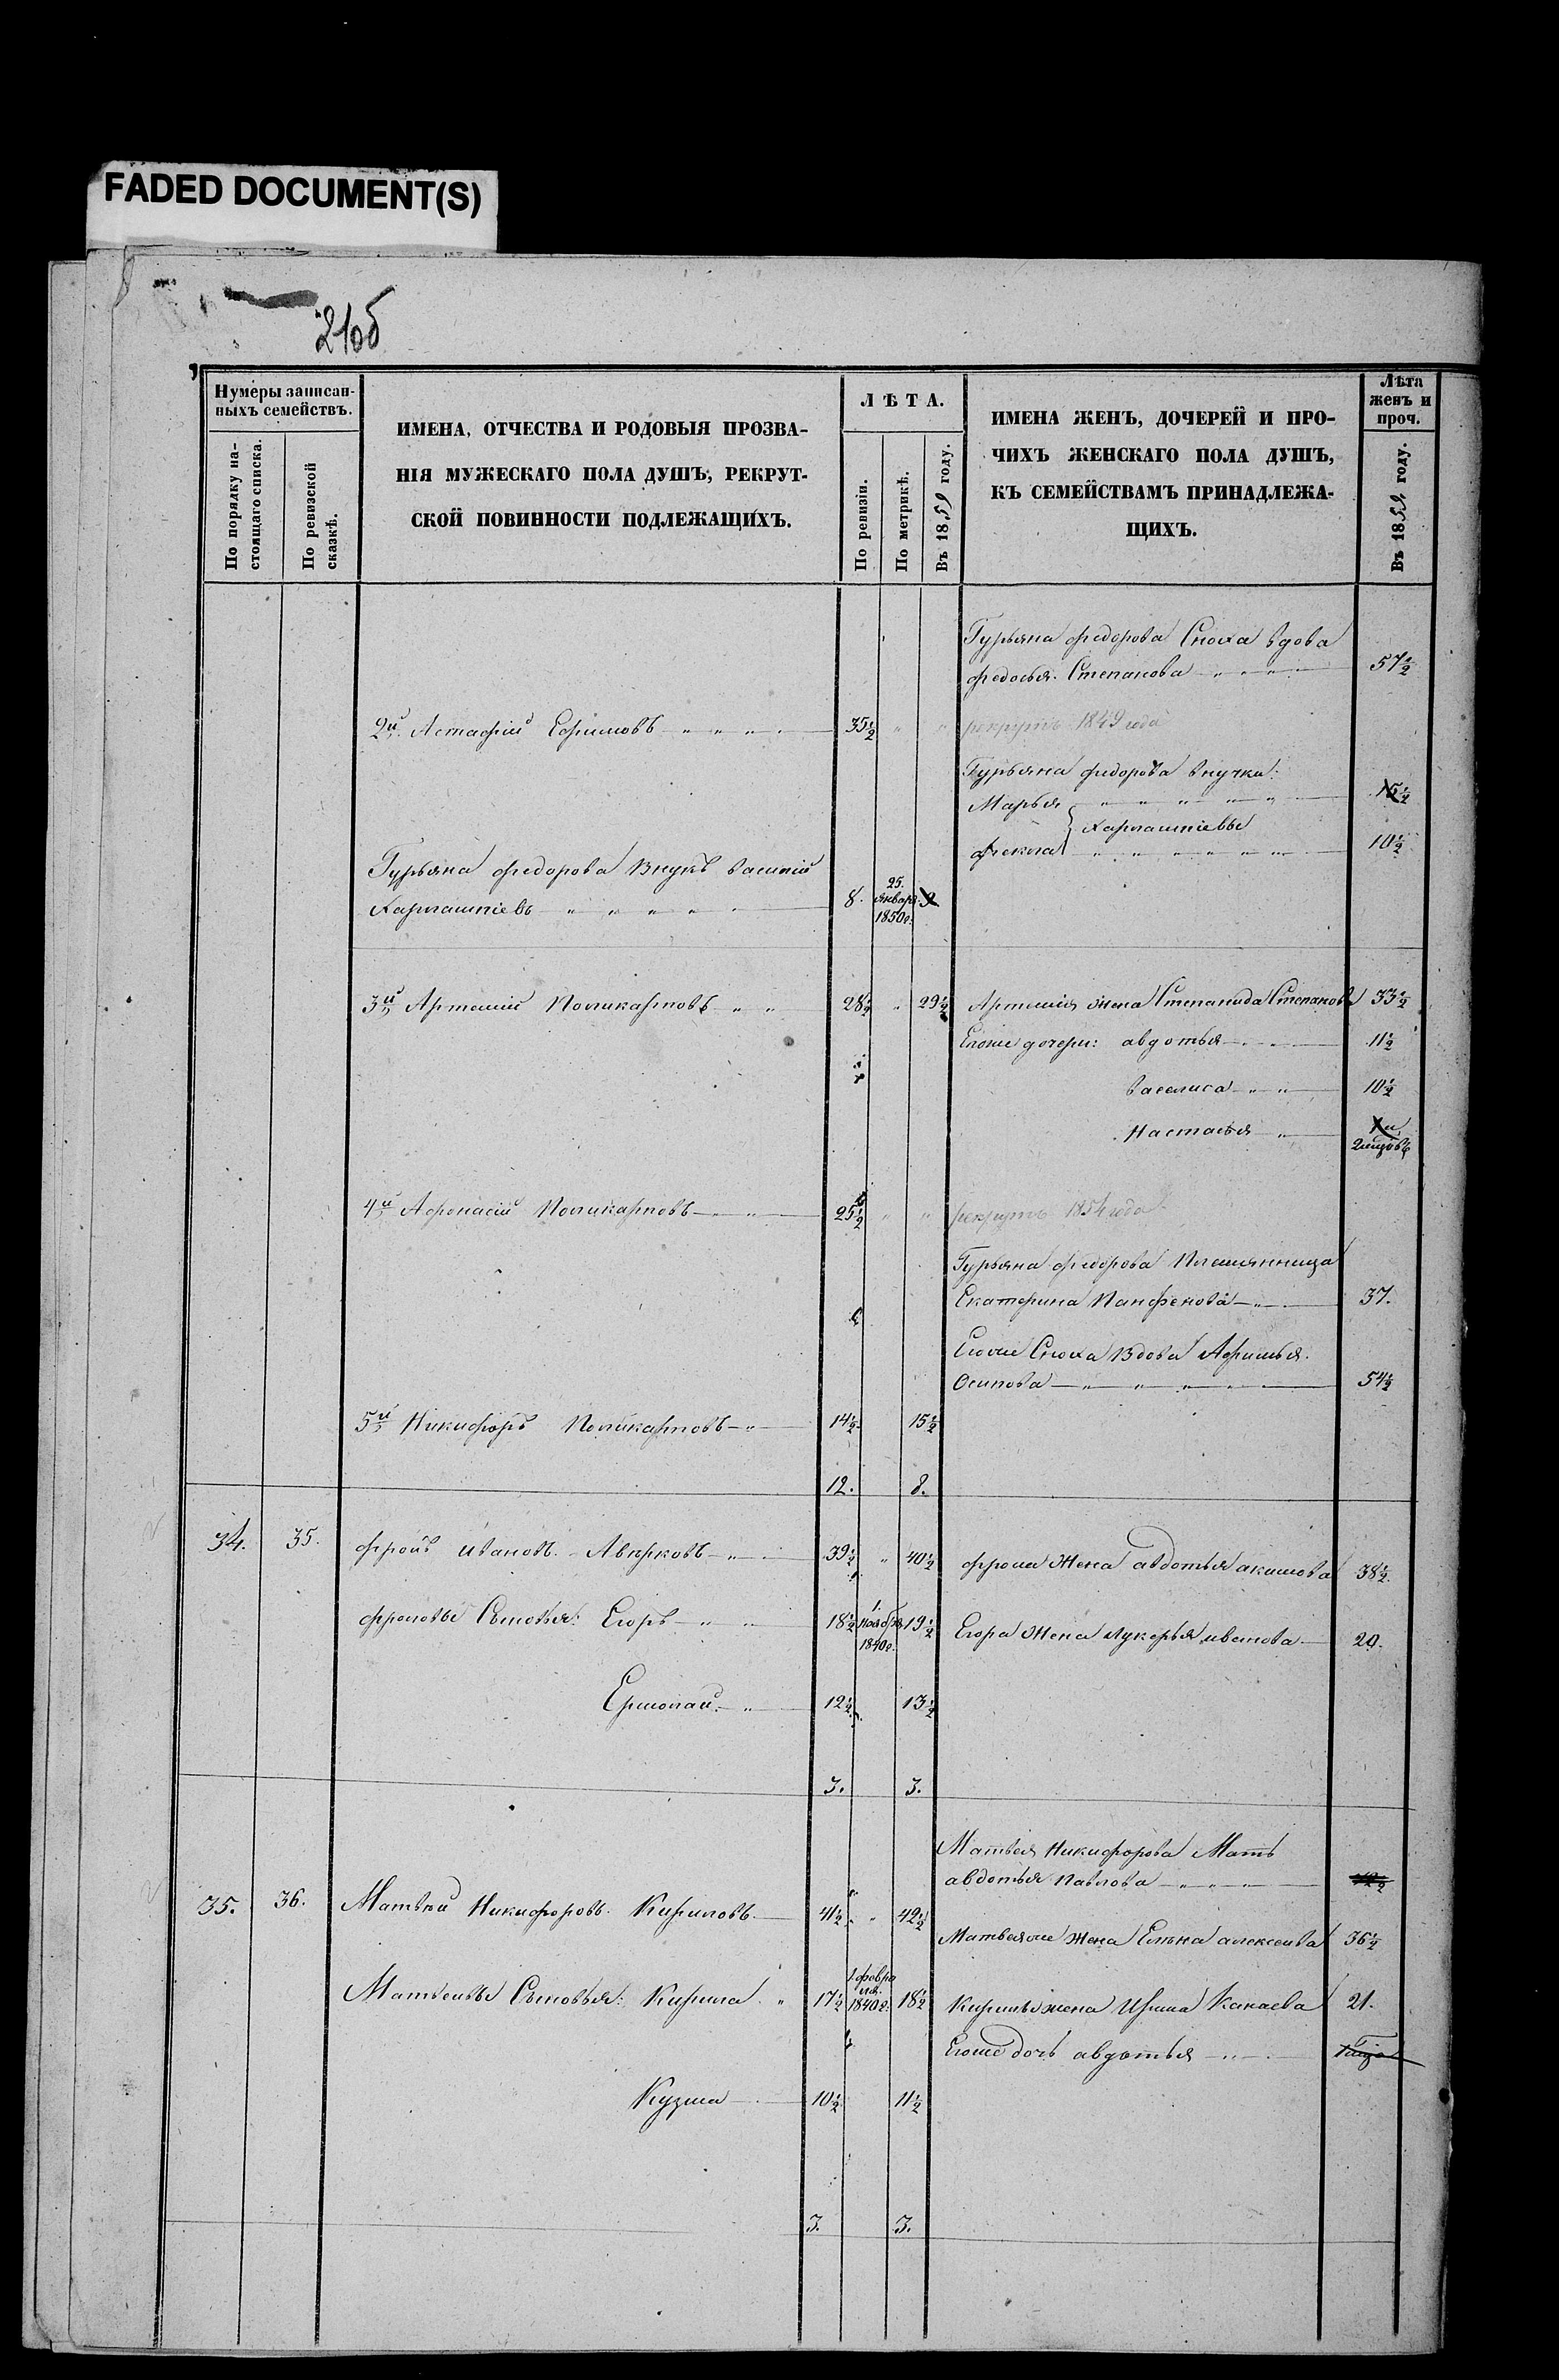 FADED DOCUMENT(S)
21об
Нумеры записан-
ныхъ семействъ.
По порядку на-
стоящаго списка.
По ревизской
сказкѣ.
ИМЕНА, ОТЧЕСТВА И РОДОВЫЯ ПРОЗВА-
НІЯ МУЖЕСКАГО ПОЛА ДУШЪ, РЕКРУТ-
СКОЙ ПОВИННОСТИ ПОДЛЕЖАЩИХЪ.
ЛѢТА.
По ревизіи.
По метрикѣ.
Въ 1859 году.
ИМЕНА ЖЕНЪ, ДОЧЕРЕЙ И ПРО-
ЧИХЪ ЖЕНСКАГО ПОЛА ДУШЪ,
КЪ СЕМЕЙСТВАМЪ ПРИНАДЛЕЖА-
ЩИХЪ.
Лѣта
женъ и
проч.
Въ 1859 году.
Гурьяна федорова Сноха вдова
федосья Степанова 57½
2й Астафій Ефимовъ 35½ рекрутъ 1849 года
Гурьяна федорова внучки:
Марья 15½
Харлампіевы
фекла 10½
Гурьяна федорова Внукъ василій
Харлампіевъ 8. 25. января 1850г. 9
3й Артемій Поликарповъ 28½ 29½ Артемія жена Степанида Степанова 33½
Егоже дочери: авдотья 11½
василиса 10½
Настасья
4й Афонасій Поликарповъ 25½ рекрутъ 1854 года
Гурьяна федорова Племянница
Екатерина Панфенова 37.
Егоже Сноха Вдова Афимья
Осипова 54½
5й Никифоръ Поликарповъ 14½ 15½
12. 8.
34. 35. фролъ ивановъ Авѣрковъ 39½ 40½ фрола жена авдотья акимова 38½
фроловы Сыновья: Егоръ 18½ 1. ноября 1840г. 19½ Егора жена лукерья иванова 20.
Ермолай 12½ 13½
3. 3.
Матвея Никифорова Мать
авдотья Павлова
35. 36. Матвѣй Никифоровъ Кириловъ 41½ 42½
Матвеяже жена Елѣна алексеива 36½
Матвеивы Сыновья: Кирила 17½ 1. февраля 1840г. 18½ Кирилы жена Ирина Канаева 21.
Егоже дочь авдотья
Кузма 10½ 11½
3. 3.